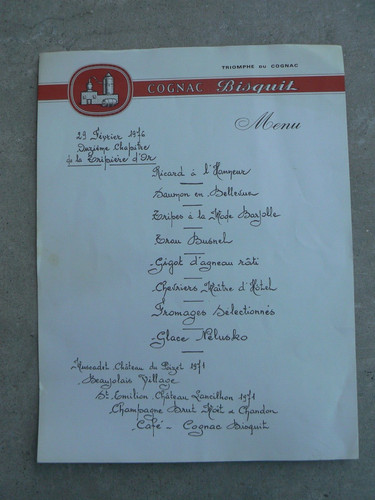 TRIOMPHE DU COGNAC
COGNAC Bisquit
Menu
29 Février 1976
Douzième Chapitre
de la Tripière d'Or
Ricard à l'Honneur
Saumon en Bellevue
Tripes à la Mode
Trou Busnel
Gigot d'agneau rôti
Chevriers Maître d'Hôtel
Fromages Sélectionnés
Glace Nélusko
Muscadet Château du 1971
Beaujolais Village
St Emilion Château 1971
Champagne Brut Moët & Chandon
Café - Cognac Bisquit